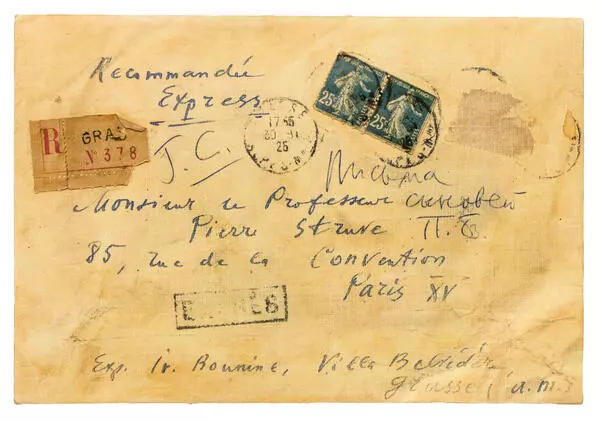 Recommandée
Express
R GRAS
N° 378
J. C.
17 35
30 - XI
25
25c 25c
Monsieur le Professeur
Pierre Struve П. Б.
85, rue de la Convention
Paris XV
EXPRÈS
Exp. Iv. Bounine, Villa Belvédère
Grasse, a. m.